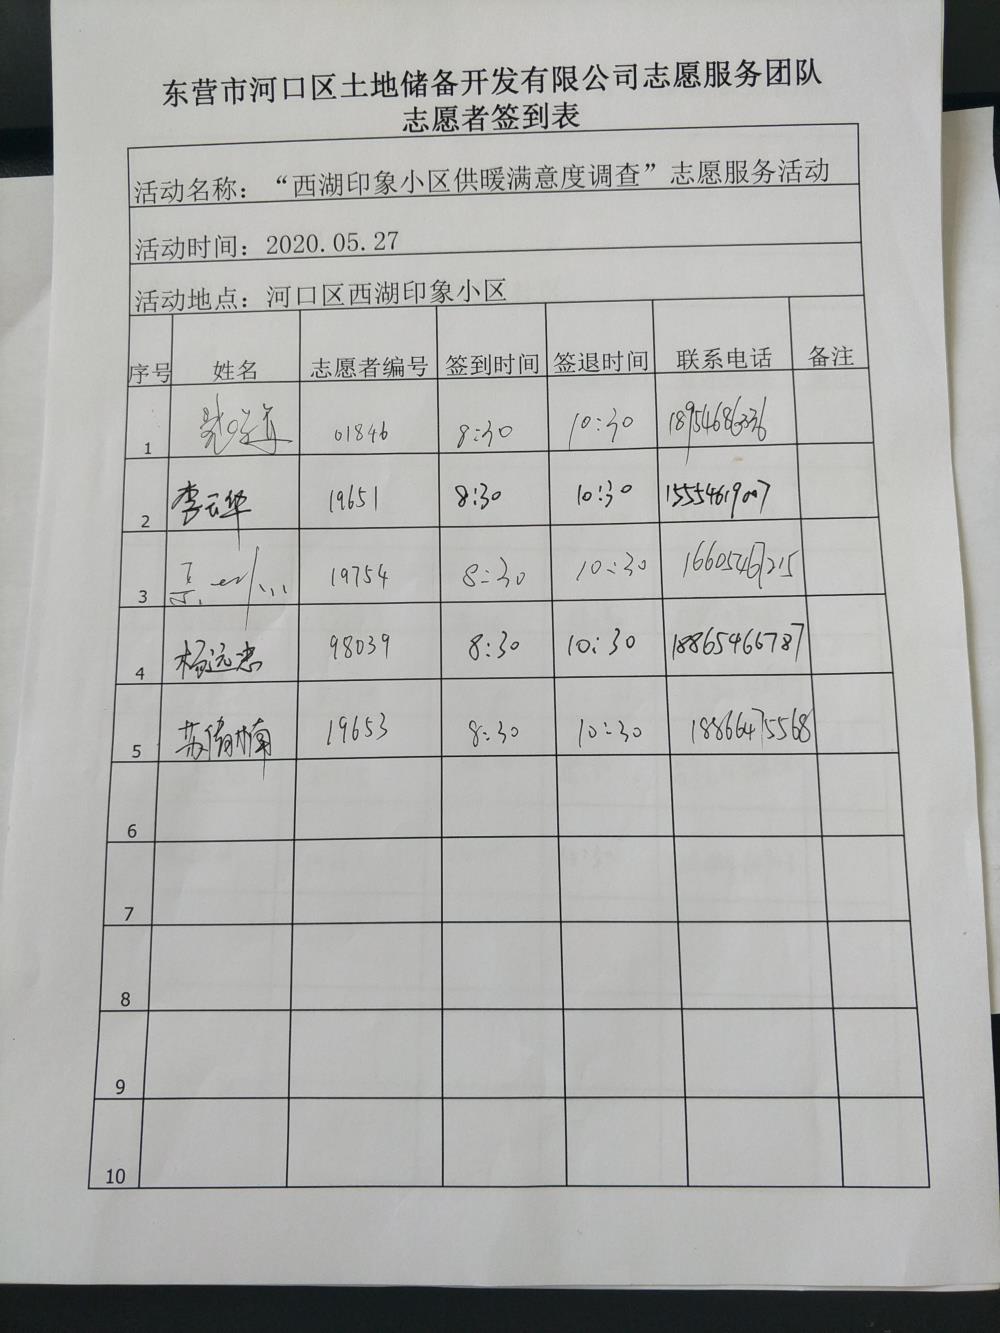 东营市河口区土地储备开发有限公司志愿服务团队
志愿者签到表
活动名称：“西湖印象小区供暖满意度调查”志愿服务活动
活动时间：2020.05.27
活动地点：河口区西湖印象小区
序号 姓名 志愿者编号 签到时间 签退时间 联系电话 备注
1 01846 8:30 10:30 18954686336
2 李云华 19651 8:30 10:30 15554619007
3 19754 8:30 10:30 16605467215
4 杨远忠 98039 8:30 10:30 18865466787
5 苏倩楠 19653 8:30 10:30 18866475568
6
7
8
9
10